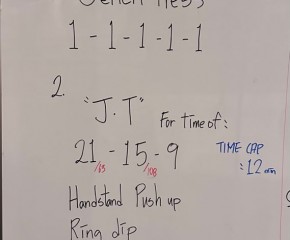 Bench Press
1 - 1 - 1 - 1 - 1
2.
"J.T"
For time of:
21 - 15 - 9
TIME CAP
: 12 min
Handstand Push up
Ring dip